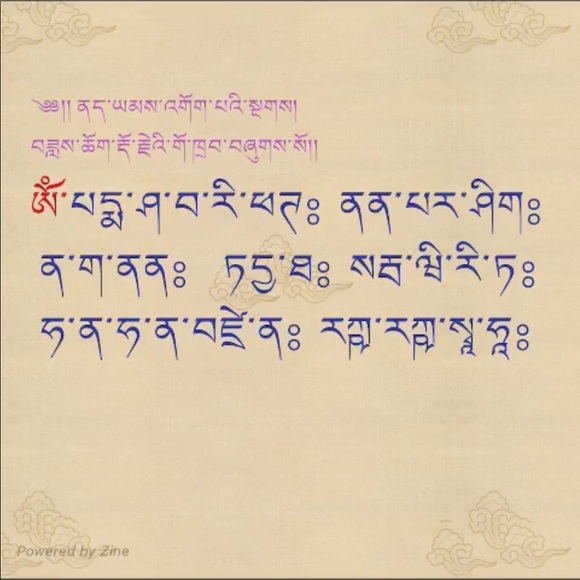 ༄༅།། ནད་ཡམས་འགོག་པའི་སྔགས།
བཟླས་ཆོག་རྡོ་རྗེའི་གོ་ཁྲབ་བཞུགས་སོ།།
ཨོཾ་པདྨ་ཤ་བ་རི་ཕཊ༔ ནན་པར་ཤིག༔
ན་ག་ནན༔ ཏདྱ་ཐ༔ སརྦ་ལི་རི་ཏ༔
ཧ་ན་ཧ་ན་བཛྲེ་ན༔ རཀྵ་རཀྵ་སྭཱ་ཧཱ༔
Powered by Zine